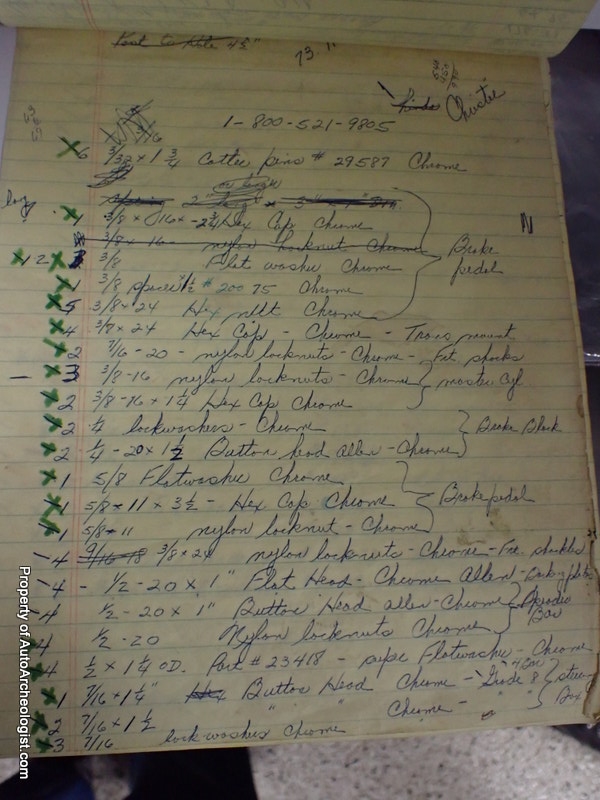 Bolt to Hole 4½"
73 11
Christie
1-800-521-9805
6 3/32 x 1 3/4 Cotter pins # 29587 Chrome
or larger
Spring 2" long x 3"
1 3/8 x 16 x -2 3/4 Hex Cap Chrome
3/8 - 16 - nylon locknut Chrome
N
12 3/8 Flat washer Chrome
Brake pedal
1 3/8 spacer x ½ # 20075 Chrome
5 3/8 x 24 Hex nut Chrome
4 3/8 x 24 Hex Cap - Chrome - Trans mount
2 7/16 - 20 - nylon locknuts - Chrome - Frt shocks
- 3 3/8-16 nylon locknuts - Chrome
master cyl
2 3/8-16 x 1 1/4 Hex Cap Chrome
2 1/4 lockwashers - Chrome
Brake Block
2 1/4 -20 x 1 1/2 Button head allen - Chrome
1 5/8 Flatwasher Chrome
1 5/8 x 11 x 3½ - Hex Cap Chrome
Brake pedal
1 5/8-11 nylon locknut - Chrome
-4 9/16-18 3/8 x 24 nylon locknuts - Chrome - Frt. shackles
-4 - ½ -20 x 1" Flat Head - Chrome Allen -
-4 ½ -20 x 1" Button Head allen - Chrome
Bar
4 ½ -20 Nylon locknuts Chrome
4 ½ x 1¼ OD. Part # 23418 - Flatwasher - Chrome
1 7/16 x 1¼" Hex Button Head Chrome - Grade 8
Box
2 7/16 x 1½ " " Chrome - " "
3 7/16 lock washers Chrome
Property of AutoArcheologist.com